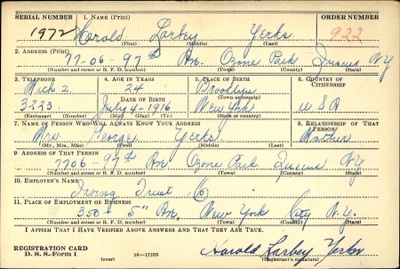 SERIAL NUMBER 1. NAME (Print) ORDER NUMBER
1972 Harold Larkey Yerks 922
(First) (Middle) (Last)
2. ADDRESS (Print)
77-06-97th Av. Ozone Park Queens N.Y.
(Number and street or R. F. D. number) (Town) (County) (State)
3. TELEPHONE 4. AGE IN YEARS 5. PLACE OF BIRTH 6. COUNTRY OF CITIZENSHIP
Mich 2. 24 Brooklyn
DATE OF BIRTH
3223 July 4-1916 New York U S A
(Exchange) (Number) (Mo.) (Day) (Yr.) (State or country)
7. NAME OF PERSON WHO WILL ALWAYS KNOW YOUR ADDRESS 8. RELATIONSHIP OF THAT PERSON
Mrs. George Yerks Mother
(Mr., Mrs., Miss) (First) (Middle) (Last)
9. ADDRESS OF THAT PERSON
7706-97th Av Ozone Park Queens NY
(Number and street or R. F. D. number) (Town) (County) (State)
10. EMPLOYER'S NAME
Irving Trust Co
11. PLACE OF EMPLOYMENT OR BUSINESS
350-5th Av. New York City N.Y.
(Number and street or R. F. D. number) (Town) (County) (State)
I AFFIRM THAT I HAVE VERIFIED ABOVE ANSWERS AND THAT THEY ARE TRUE.
REGISTRATION CARD
D. S. S. Form 1 16-17105 Harold Larkey Yerks
(over) (Registrant's signature)